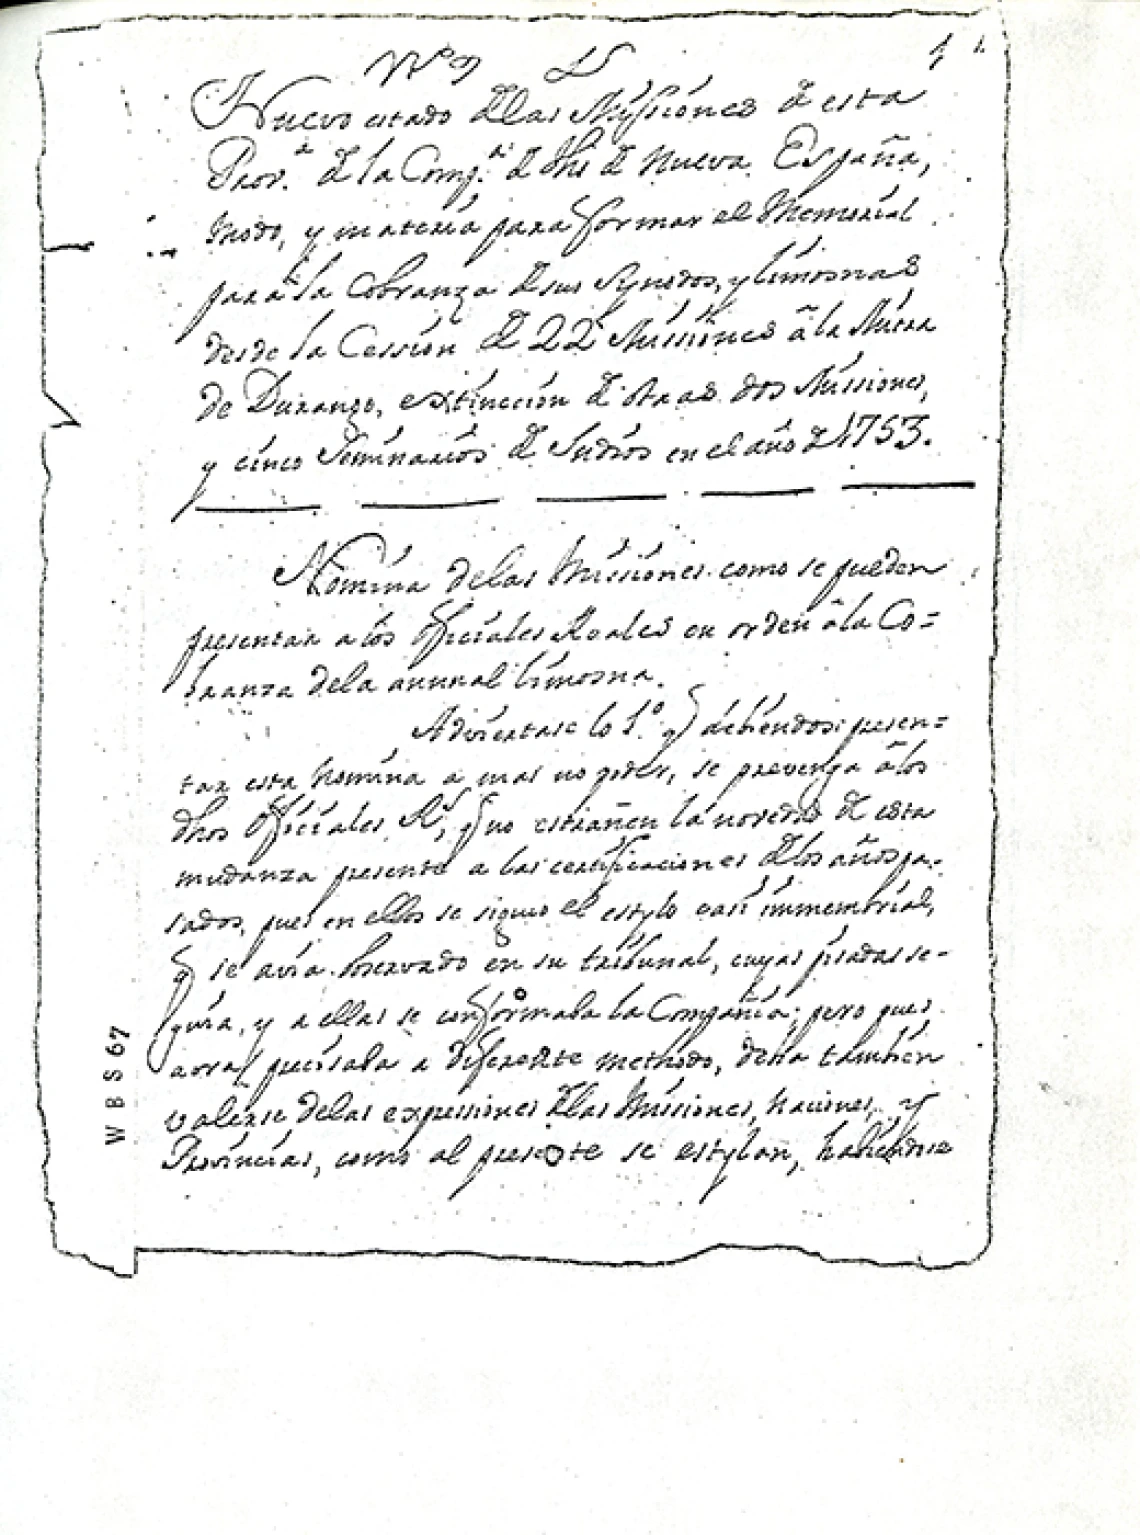 Nº 9
1
Nuevo estado de las Missiones de esta
Prov.ª de la Comp.ª de Jhs de Nueva España,
modo, y materia para formar el Memorial
para la Cobranza de sus Synodos, y limosnas
desde la Cession de 22 Missiones â la Mitra
de Durango, extincion de otras dos Missiones,
y cinco Seminarios de Indios en el año de 1753.
Nomina de las Missiones como se pueden
presentar a los Oficiales Reales en orden â la Co=
branza dela annual limosna.
Adviertase lo 1.º q debiendose presen=
tar esta Nomina a mas no poder, se prevenga â los
dhos Oficiales Rs, q no estrañen la novedad de esta
mudanza presente a las certificaciones de los años pa-
sados, pues en ellos se siguio el estylo casi immemorial,
q se avia observado en su tribunal, cuyas pisadas se-
guia, y a ellas se conformaba la Compañia; pero pues
aora precisaba a diferente methodo, debia tambien
valerse delas expressiones de las Missiones, Naciones, y
Provincias, como al presente se estylan, habiendose
WBS67